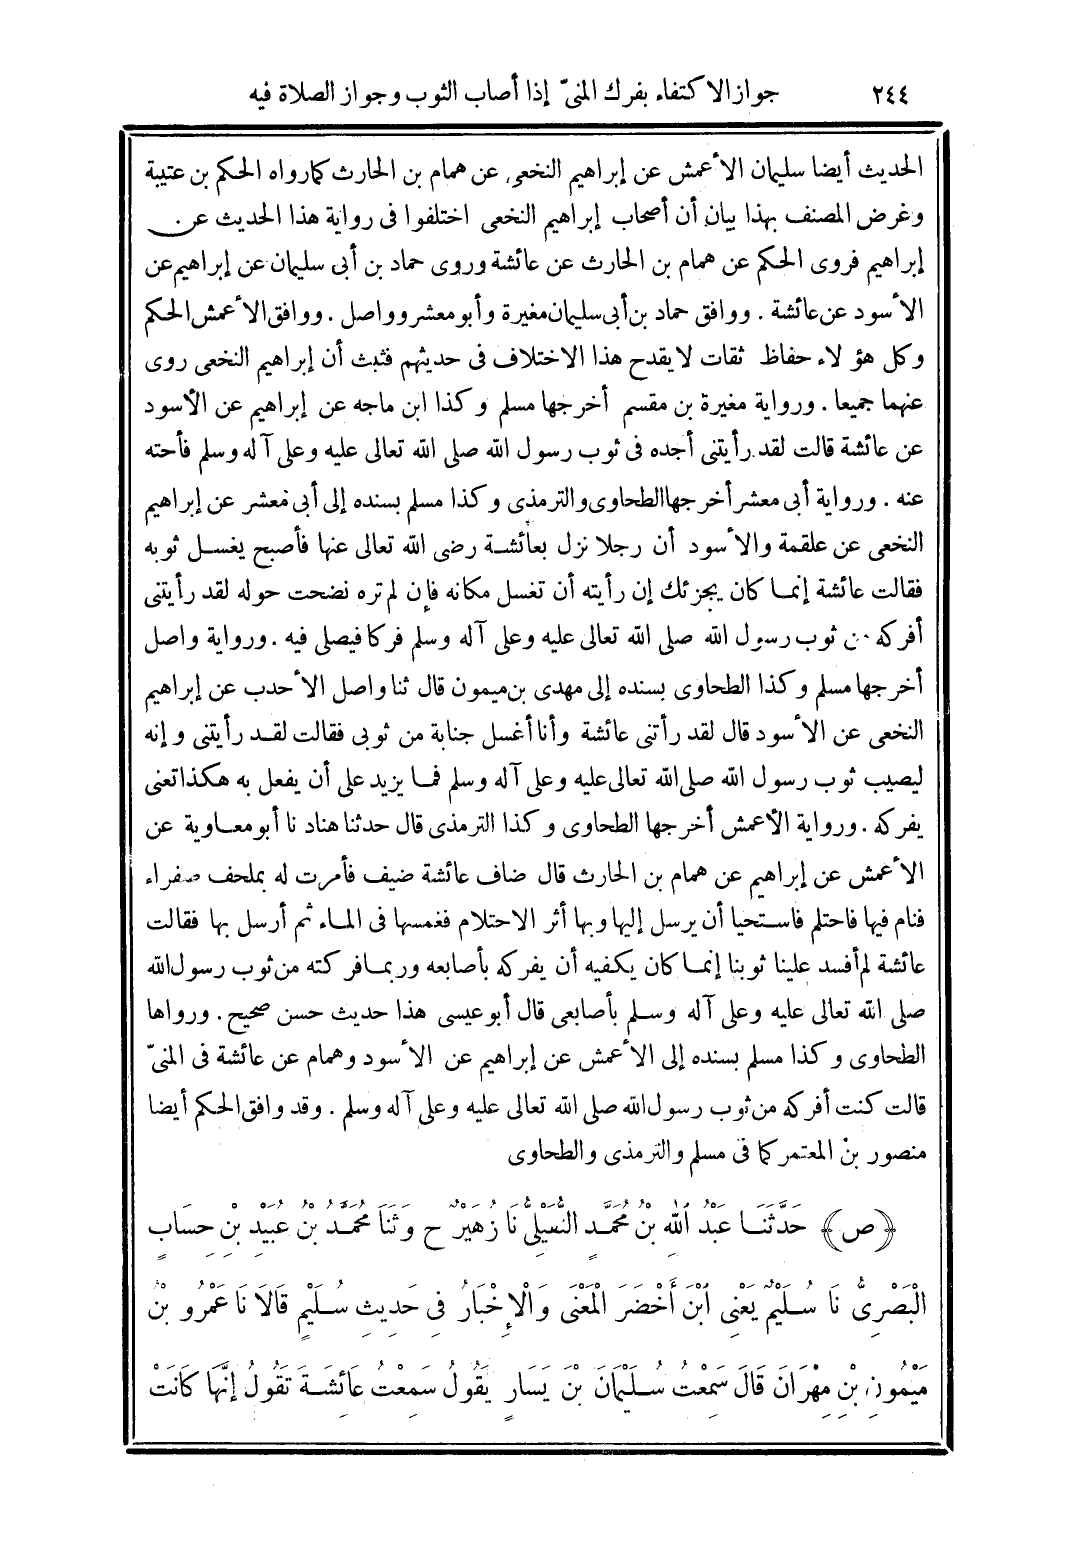 ٢٤٤ جواز الاكتفاء بفرك المنىّ إذا أصاب الثوب وجواز الصلاة فيه
الحديث أيضا سليمان الأعمش عن إبراهيم النخعى عن همام بن الحارث كما رواه الحكم بن عتيبة
وغرض المصنف بهذا بيان أن أصحاب إبراهيم النخعى اختلفوا فى رواية هذا الحديث عن
إبراهيم فروى الحكم عن همام بن الحارث عن عائشة وروى حماد بن أبى سليمان عن إبراهيم عن
الأسود عن عائشة . ووافق حماد بن أبى سليمان مغيرة وأبو معشر وواصل . ووافق الأعمش الحكم
وكل هؤلاء حفاظ ثقات لا يقدح هذا الاختلاف فى حديثهم فثبت أن إبراهيم النخعى روى
عنهما جميعا . ورواية مغيرة بن مقسم أخرجها مسلم وكذا ابن ماجه عن إبراهيم عن الأسود
عن عائشة قالت لقد رأيتنى أجده فى ثوب رسول الله صلى الله تعالى عليه وعلى آله وسلم فأحته
عنه . ورواية أبى معشر أخرجها الطحاوى والترمذى وكذا مسلم بسنده إلى أبى معشر عن إبراهيم
النخعى عن علقمة والأسود أن رجلا نزل بعائشة رضى الله تعالى عنها فأصبح يغسل ثوبه
فقالت عائشة إنما كان يجزئك إن رأيته أن تغسل مكانه فإن لم تره نضحت حوله لقد رأيتنى
أفركه من ثوب رسول الله صلى الله تعالى عليه وعلى آله وسلم فركا فيصلى فيه . ورواية واصل
أخرجها مسلم وكذا الطحاوى بسنده إلى مهدى بن ميمون قال ثنا واصل الأحدب عن إبراهيم
النخعى عن الأسود قال لقد رأتنى عائشة وأنا أغسل جنابة من ثوبى فقالت لقد رأيتنى وإنه
ليصيب ثوب رسول الله صلى الله تعالى عليه وعلى آله وسلم فما يزيد على أن يفعل به هكذا تعنى
يفركه . ورواية الأعمش أخرجها الطحاوى وكذا الترمذى قال حدثنا هناد نا أبو معاوية عن
الأعمش عن إبراهيم عن همام بن الحارث قال ضاف عائشة ضيف فأمرت له بملحف صفراء
فنام فيها فاحتلم فاستحيا أن يرسل إليها وبها أثر الاحتلام فغمسها فى الماء ثم أرسل بها فقالت
عائشة لم أفسد علينا ثوبنا إنما كان يكفيه أن يفركه بأصابعه وربما فركته من ثوب رسول الله
صلى الله تعالى عليه وعلى آله وسلم بأصابعى قال أبو عيسى هذا حديث حسن صحيح . ورواها
الطحاوى وكذا مسلم بسنده إلى الأعمش عن إبراهيم عن الأسود وهمام عن عائشة فى المنىّ
قالت كنت أفركه من ثوب رسول الله صلى الله تعالى عليه وعلى آله وسلم . وقد وافق الحكم أيضا
منصور بن المعتمر كما فى مسلم والترمذى والطحاوى
﴿ص﴾ حَدَّثَنَا عَبْدُ اللهِ بْنُ مُحَمَّدٍ النُّفَيْلِىُّ نَا زُهَيْرٌ ح وَثَنَا مُحَمَّدُ بْنُ عُبَيْدِ بْنِ حِسَابٍ
الْبَصْرِىُّ نَا سُلَيْمٌ يَعْنِى ابْنَ أَخْضَرَ الْمَعْنَى وَالْإِخْبَارُ فِى حَدِيثِ سُلَيْمٍ قَالَا نَا عَمْرُو بْنُ
مَيْمُونِ بْنِ مِهْرَانَ قَالَ سَمِعْتُ سُلَيْمَانَ بْنَ يَسَارٍ يَقُولُ سَمِعْتُ عَائِشَةَ تَقُولُ إِنَّهَا كَانَتْ